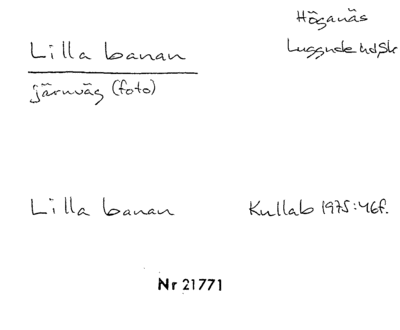 Höganäs
Lilla banan
Luggude hdsk
järnväg (foto)
Lilla banan
Kullab 1975:46f.
Nr 21771